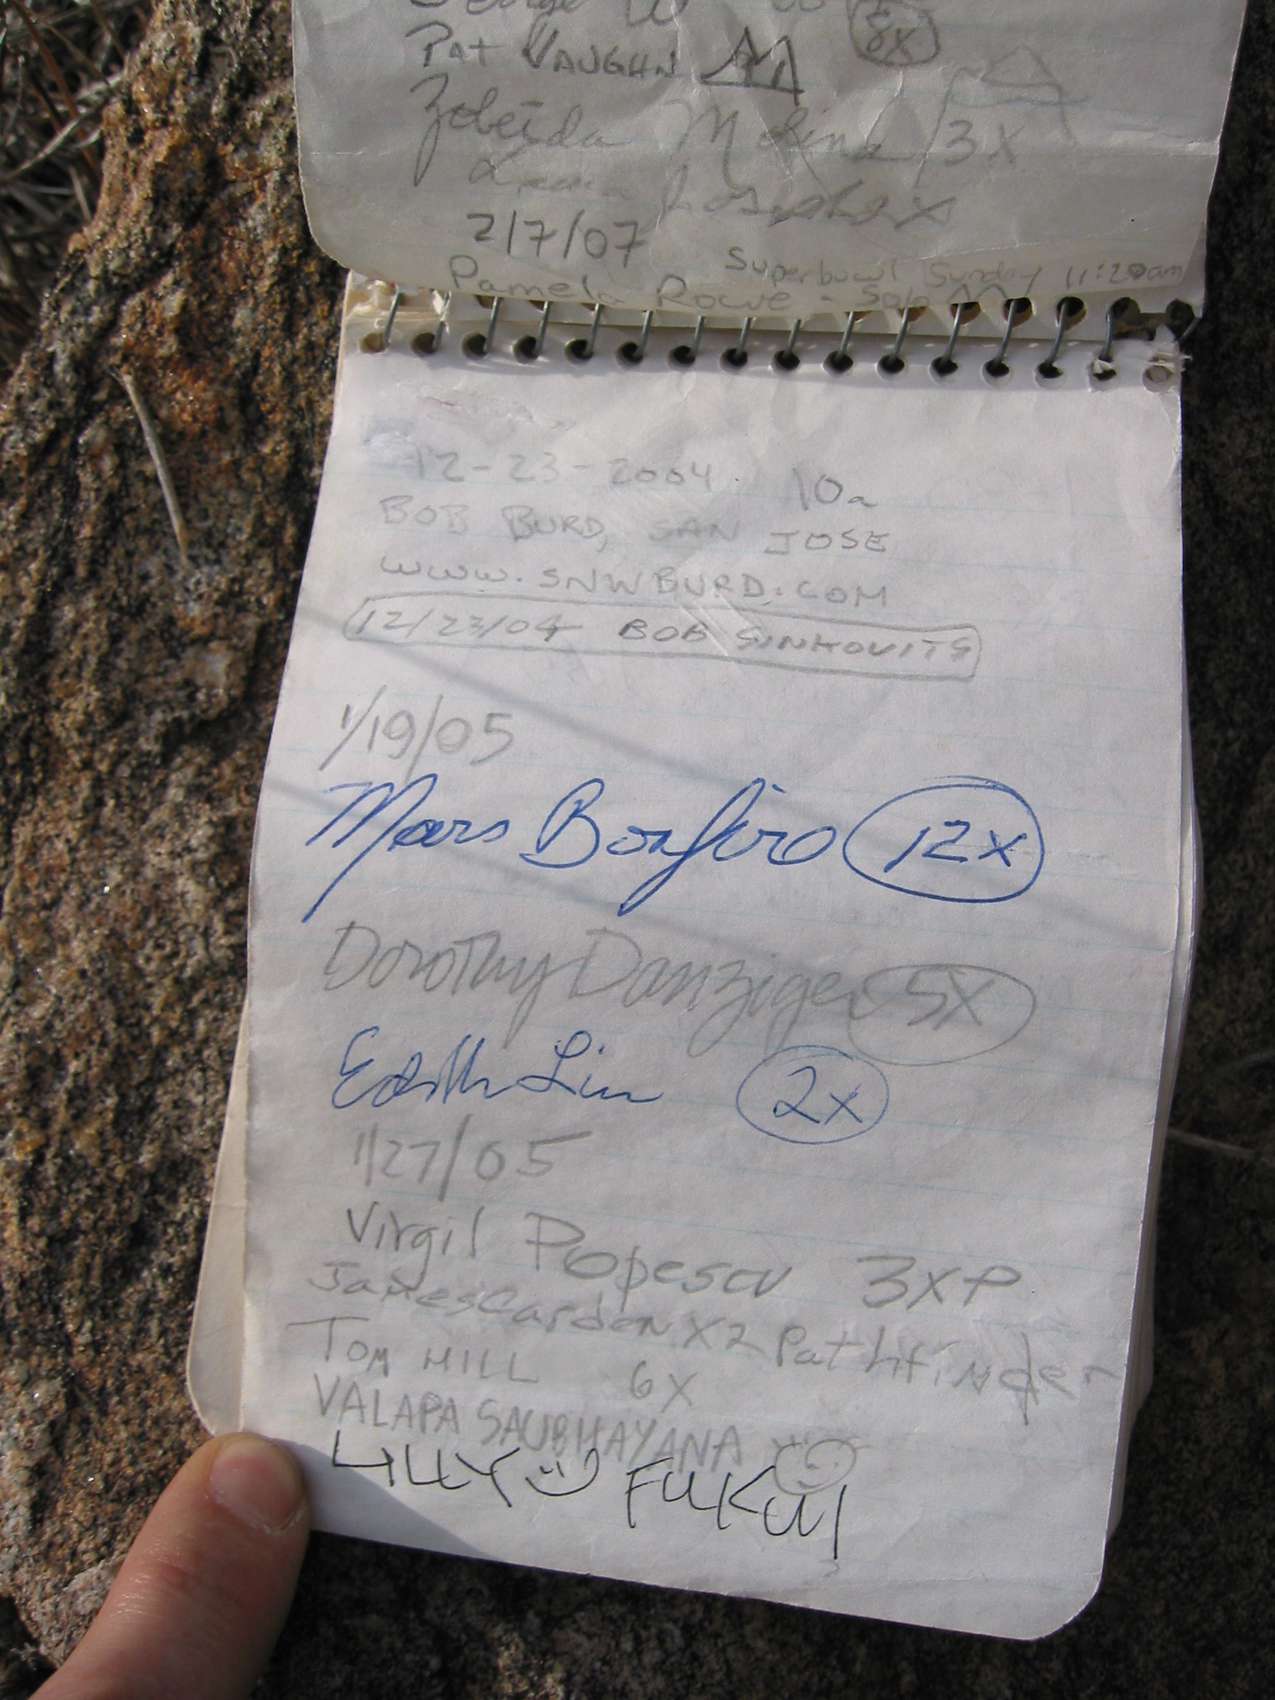 George W
8X
PAT VAUGHN
Zobeida Molina 3X
2/7/07
Superbowl Sunday 11:20am
Pamela Rowe - Solo
12-23-2004 10a
BOB BURD, SAN JOSE
WWW.SNWBURD.COM
12/23/04 BOB SINKOVITS
1/19/05
Mars Bonfire 12X
Dorothy Danziger 5X
Edith Liu 2X
1/27/05
Virgil Popescu 3XP
James Carden X2 Pathfinder
TOM HILL 6X
VALAPA SAUBHAYANA
LILLY FUKUI